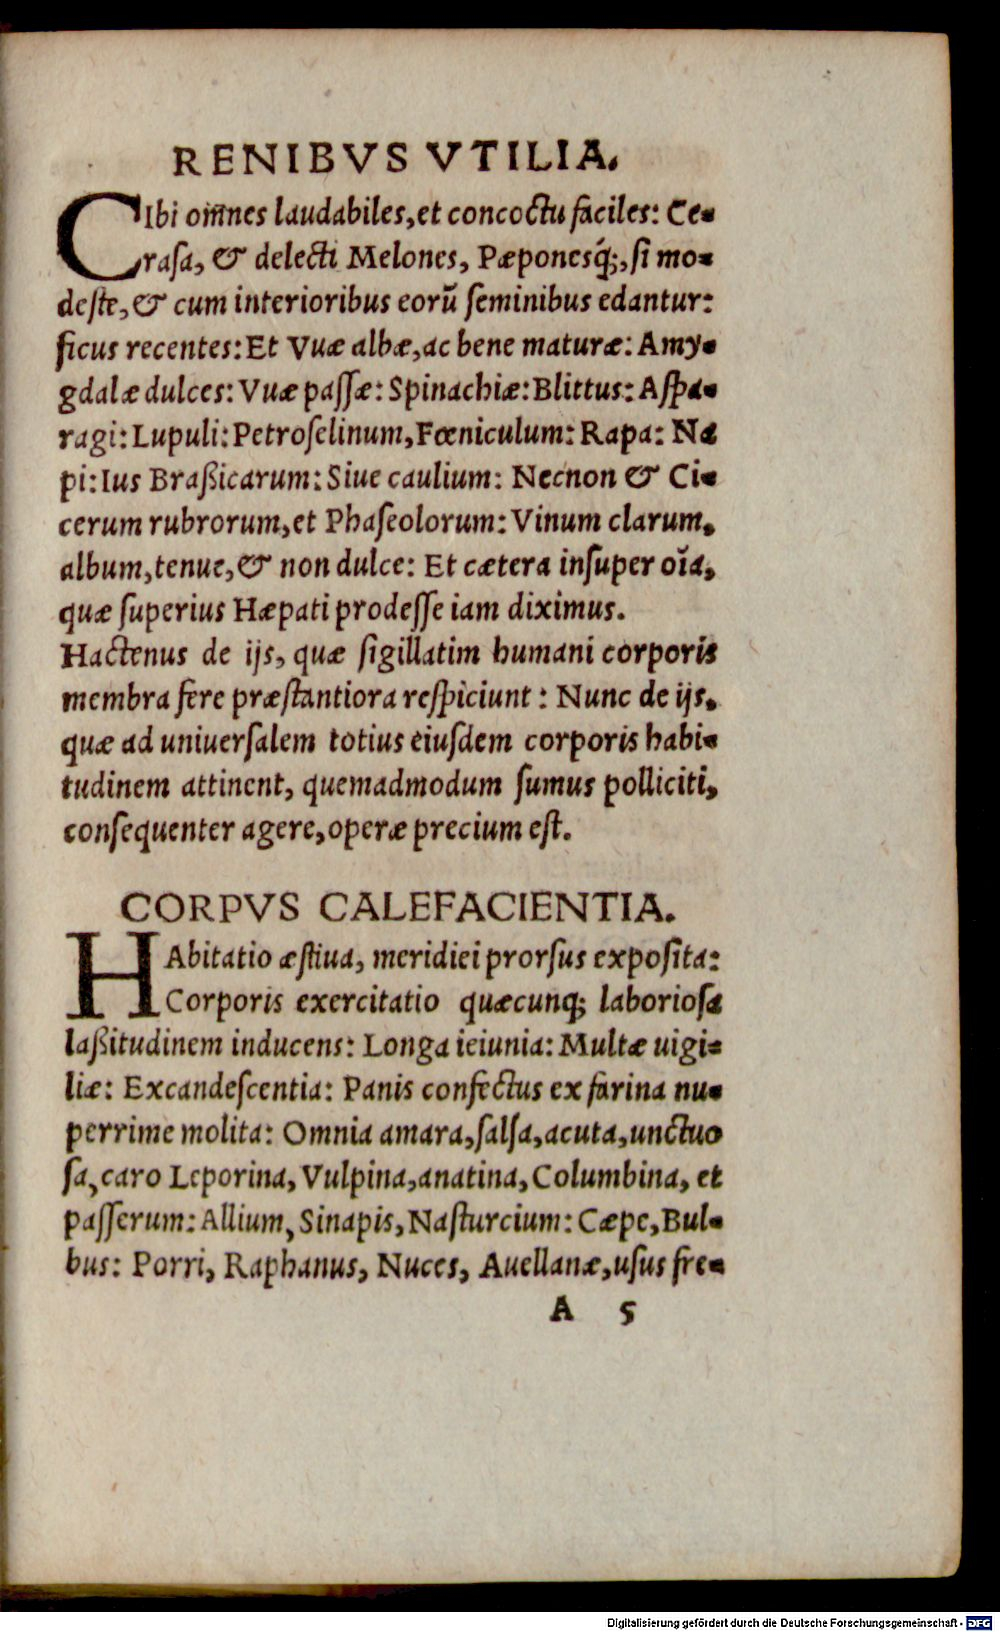 RENIBVS VTILIA.
CIbi om̃nes laudabiles, et concoctu faciles: Ce-
rasa, & delecti Melones, Pæponesq́;, si mo-
deste, & cum interioribus eorũ seminibus edantur:
ficus recentes: Et Vuæ albæ, ac bene maturæ: Amy-
gdalæ dulces: Vuæ passæ: Spinachiæ: Blittus: Aspa-
ragi: Lupuli: Petroselinum, Fœniculum: Rapa: Na
pi: Ius Braßicarum: Siue caulium: Necnon & Ci-
cerum rubrorum, et Phaseolorum: Vinum clarum,
album, tenue, & non dulce: Et cætera insuper oĩa,
quæ superius Hæpati prodesse iam diximus.
Hactenus de ijs, quæ sigillatim humani corporis
membra fere præstantiora respiciunt: Nunc de ijs,
quæ ad uniuersalem totius eiusdem corporis habi-
tudinem attinent, quemadmodum sumus polliciti,
consequenter agere, operæ precium est.
CORPVS CALEFACIENTIA.
HAbitatio æstiua, meridiei prorsus exposita:
Corporis exercitatio quæcunq; laboriosa
laßitudinem inducens: Longa ieiunia: Multæ uigi-
liæ: Excandescentia: Panis confectus ex farina nu-
perrime molita: Omnia amara, salsa, acuta, unctuo
sa, caro Leporina, Vulpina, anatina, Columbina, et
passerum: Allium, Sinapis, Nasturcium: Cæpe, Bul-
bus: Porri, Raphanus, Nuces, Auellanæ, usus fre-
A 5
Digitalisierung gefördert durch die Deutsche Forschungsgemeinschaft - DFG